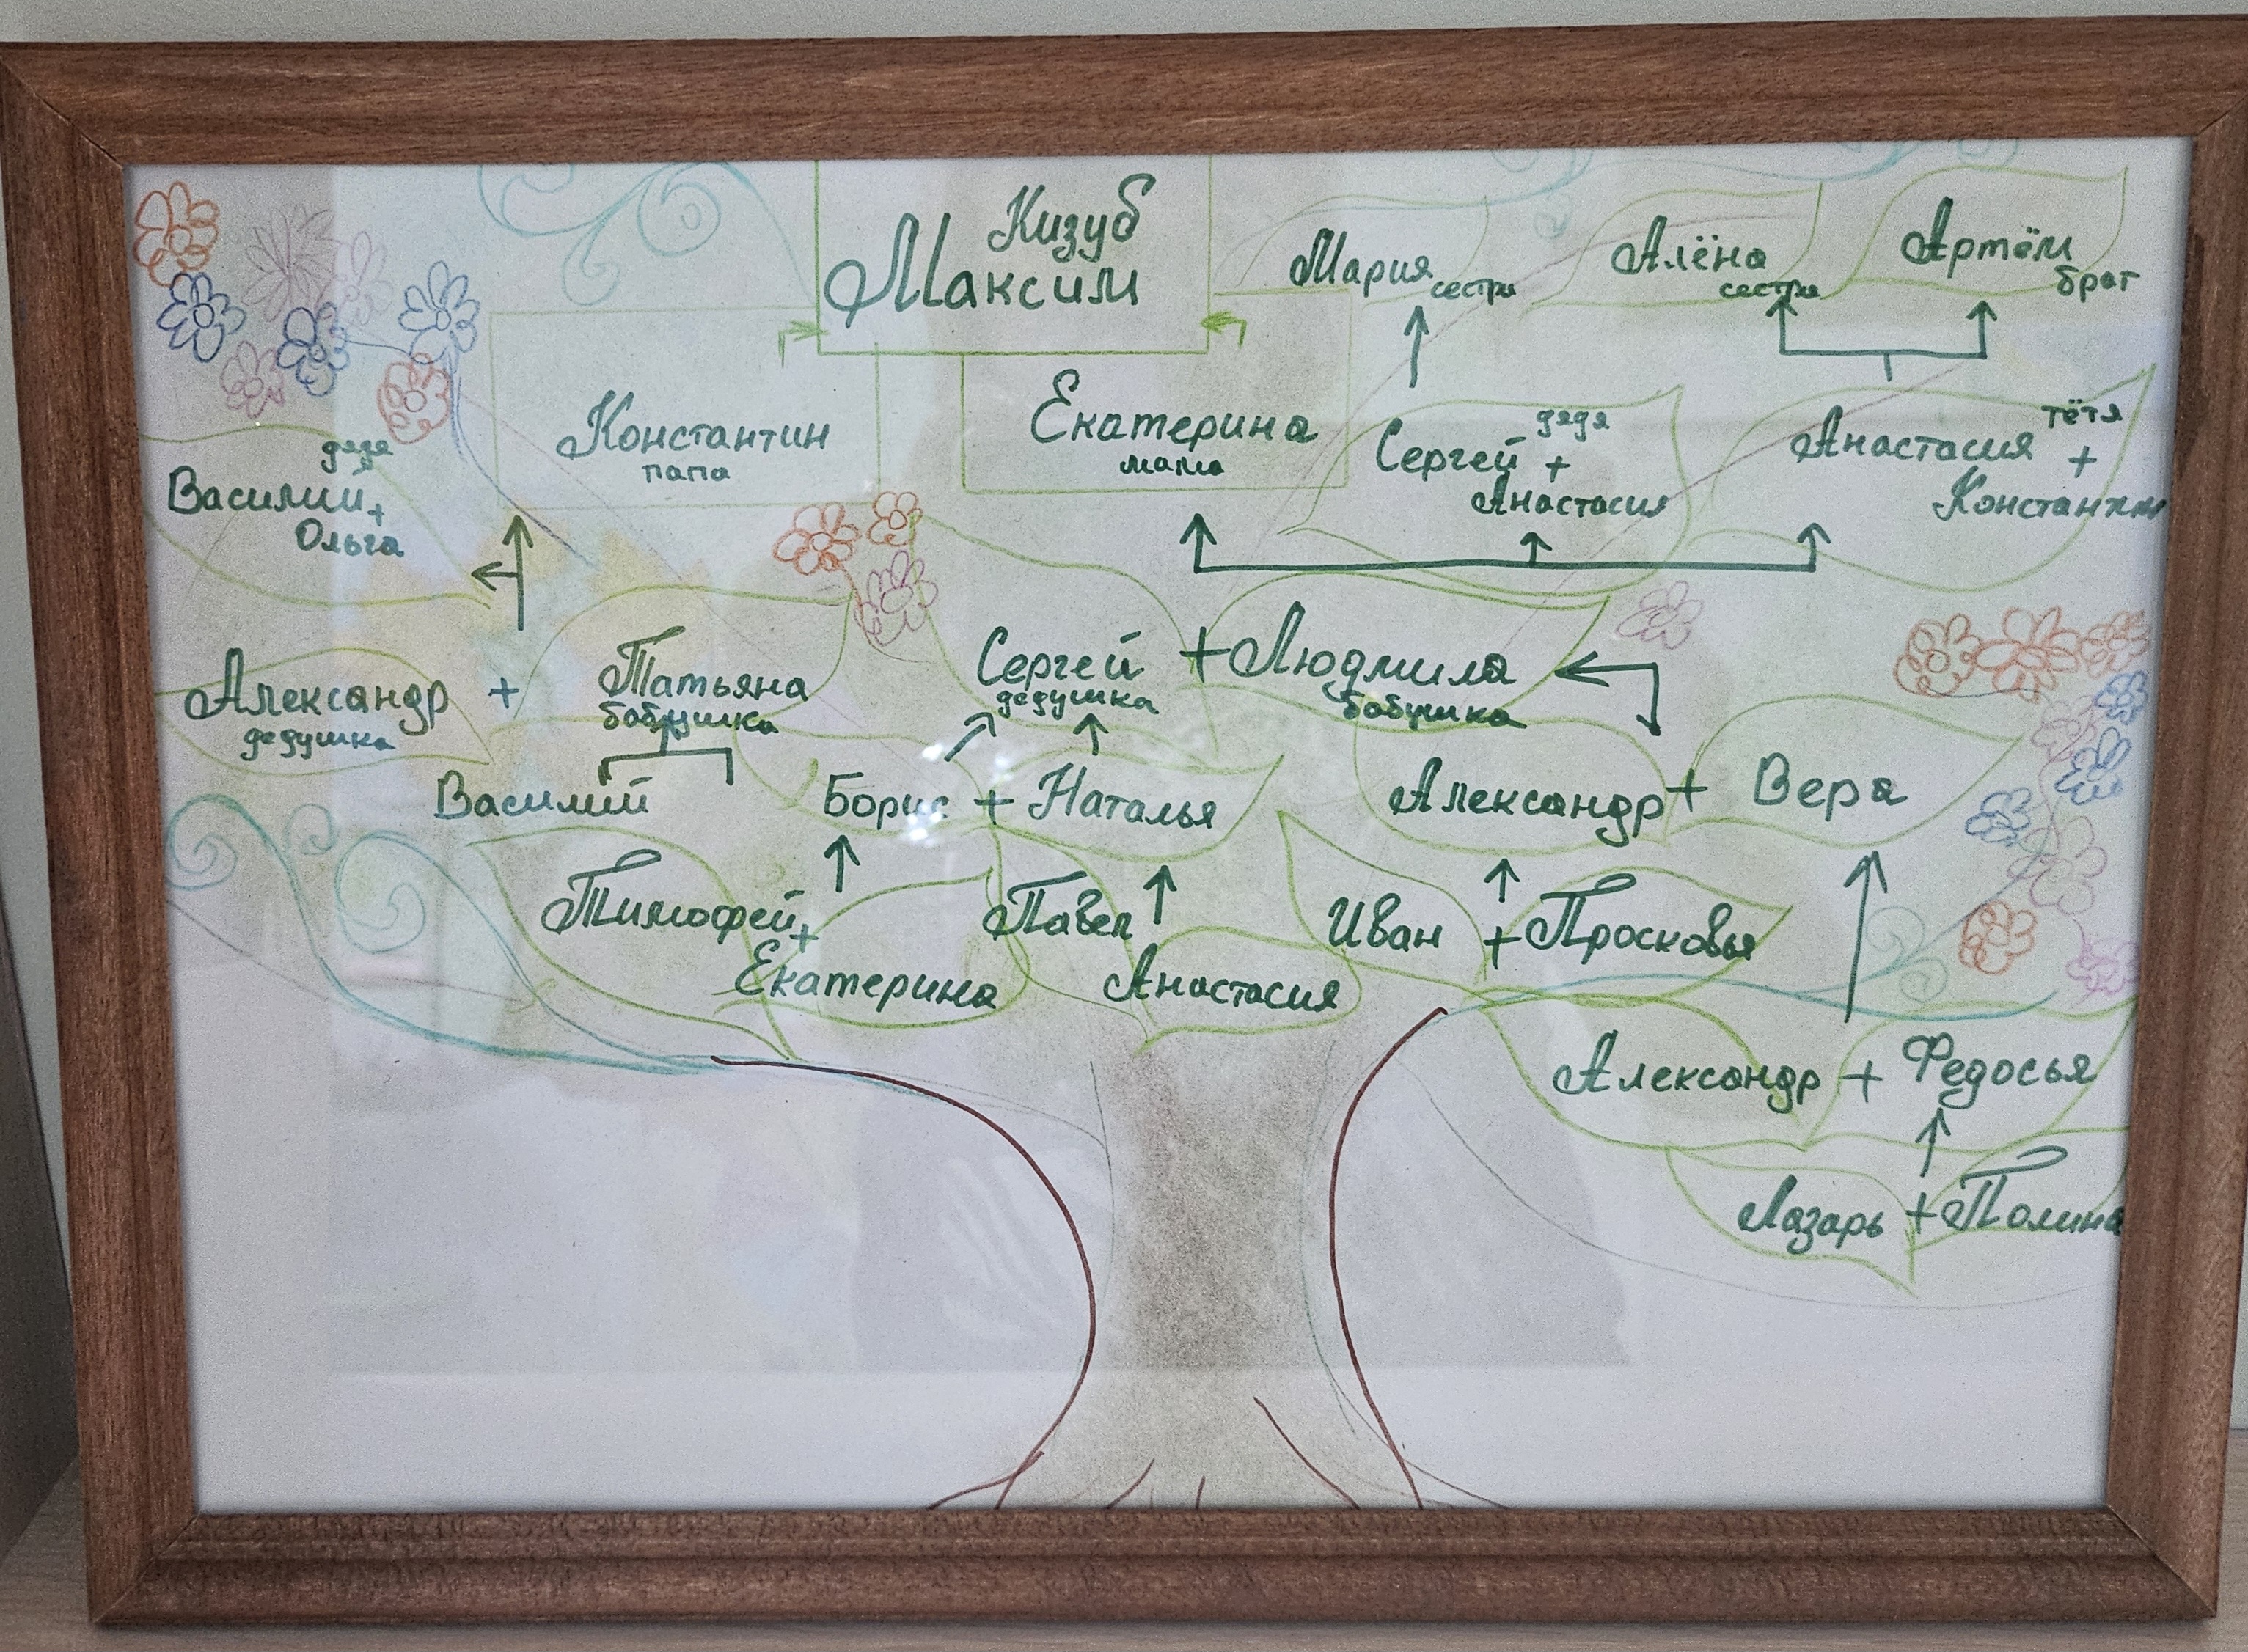 Кизуб
Максим
Мария
сестра
Алёна
сестра
Артём
брат
Константин
папа
Екатерина
мама
дядя
Сергей +
Анастасия
тётя
Анастасия +
Константин
дядя
Василий +
Ольга
Александр +
дедушка
Татьяна
бабушка
Сергей + Людмила
дедушка
бабушка
Василий
Борис + Наталья
Александр + Вера
Тимофей +
Екатерина
Павел
Анастасия
Иван + Просковья
Александр + Федосья
Лазарь + Полина